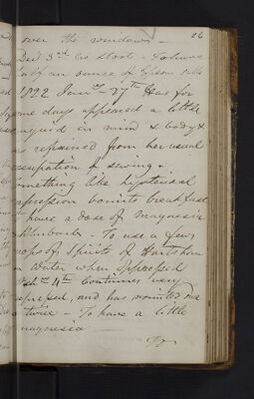 26
over the windows —
Dec 3rd no stools — Solume
half an ounce of Epsom salts
1822 Jan 27th Has for
some days appeared a little
languid in mind & body &
has refrained from her usual
occupation & sewing —
something like hysterical
oppression vomits breakfast
To have a dose of magnesia
& Rhubarb — To use a few
drops of Spirits of Hartshorn
in Water when Oppressed
4th Continues very
and has vomited
twice — To have a little
magnesia —